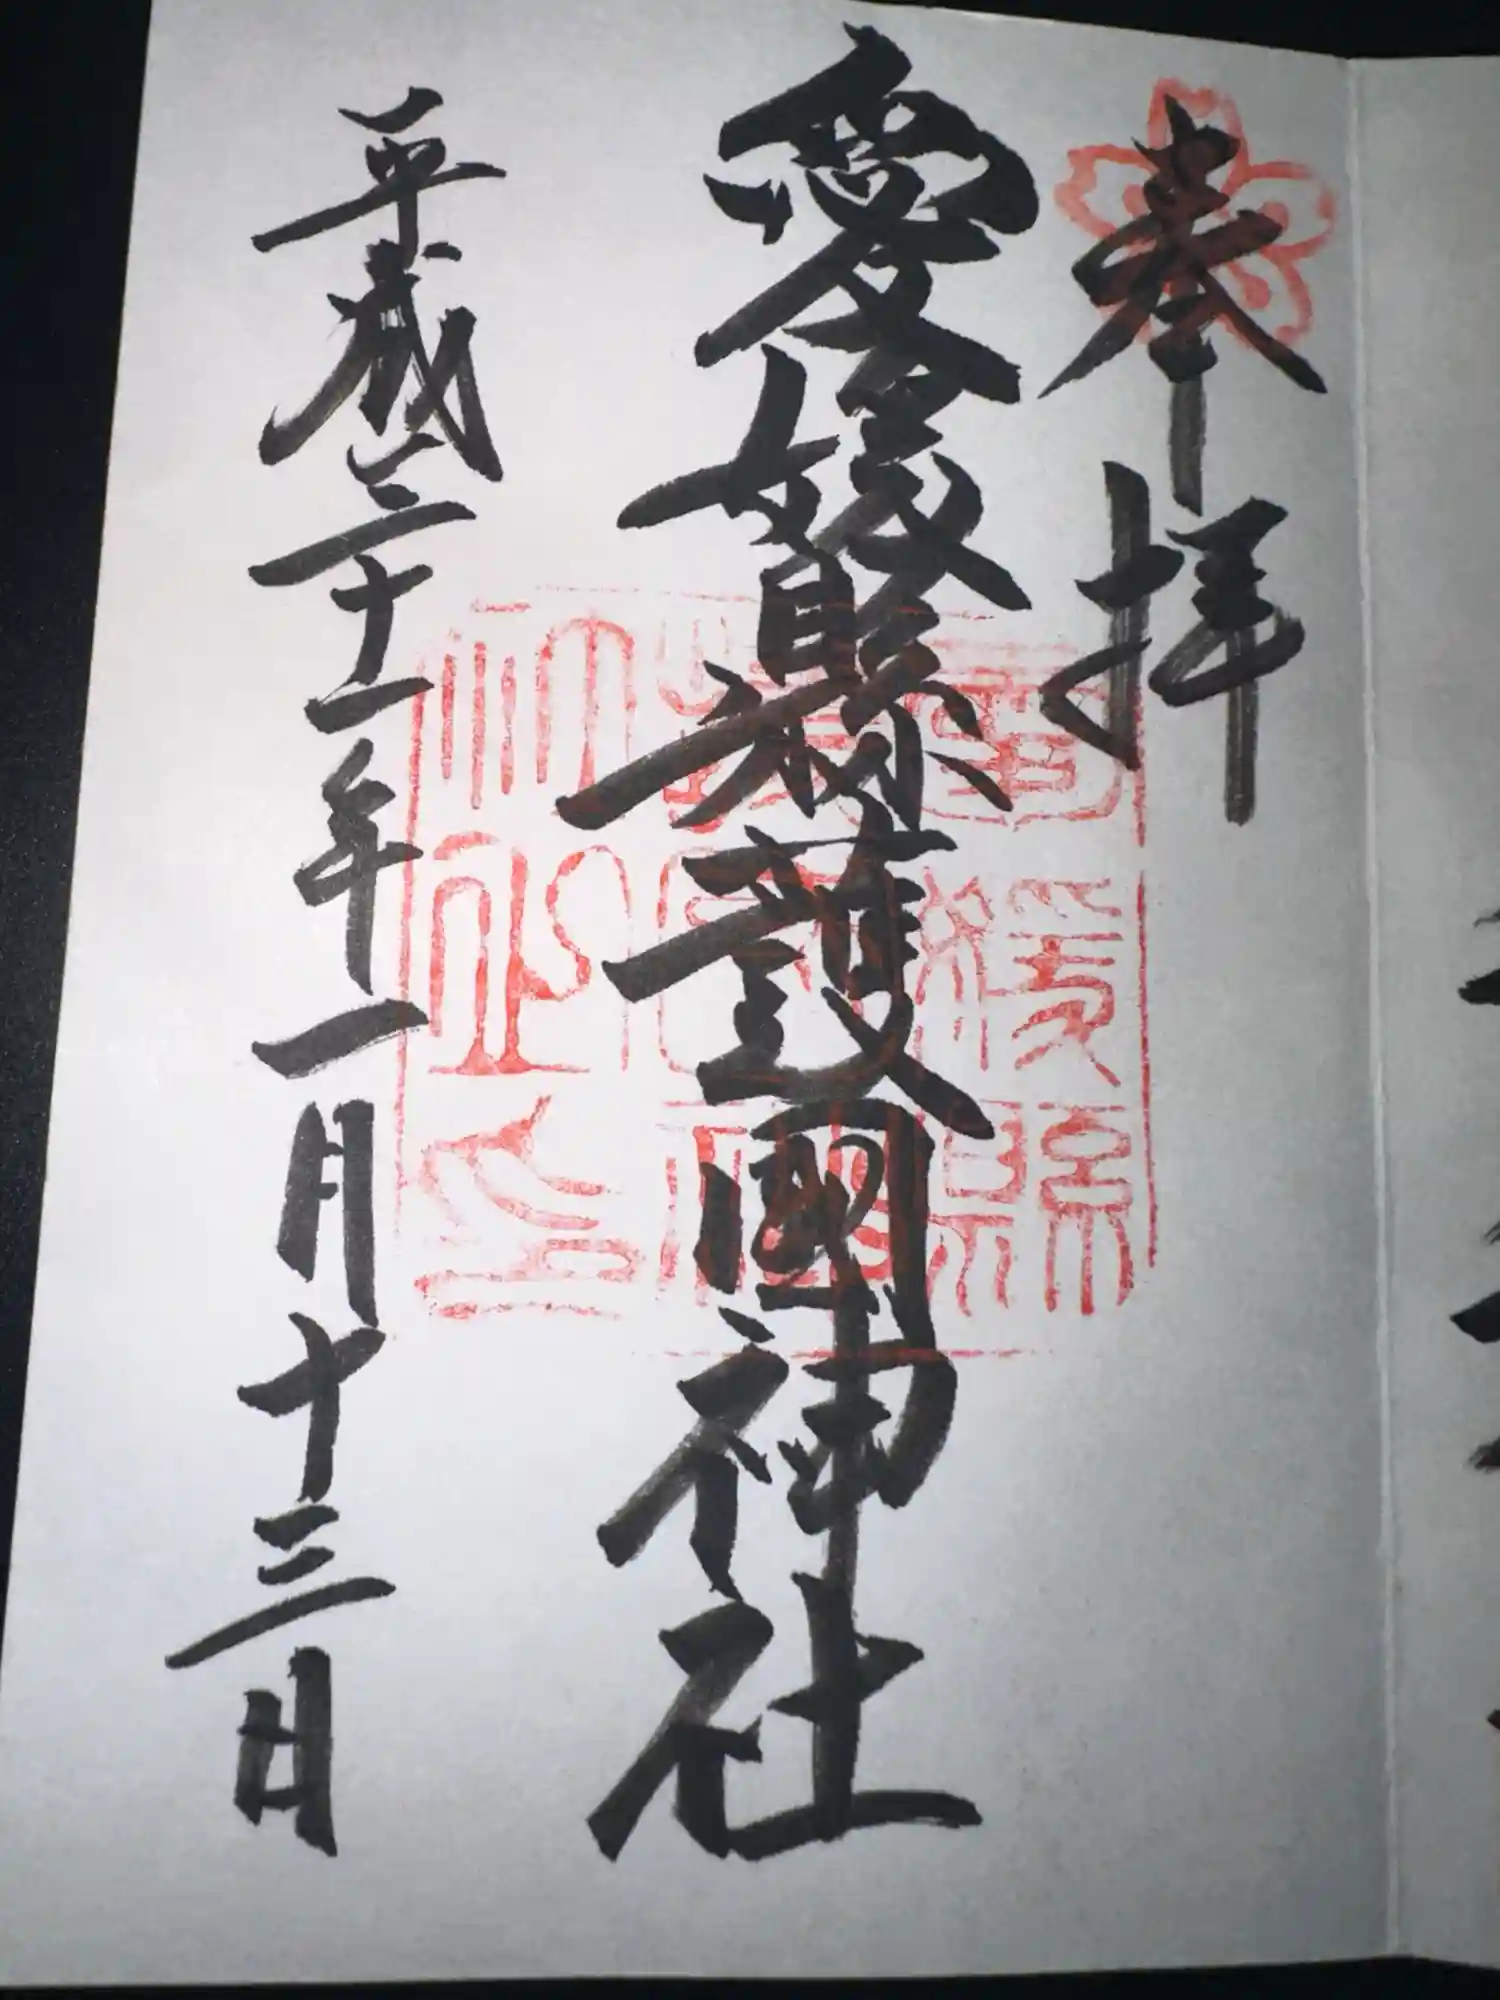 奉拝
愛媛縣護國神社
平成三十一年一月十三日